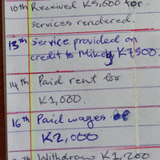 10th Received K5,000 for
services rendered.
13th Service provided on
credit to Mikely K7,500.
14th Paid rent for
K1,000.
16th Paid wages of
K2,000
Withdraw K1,200